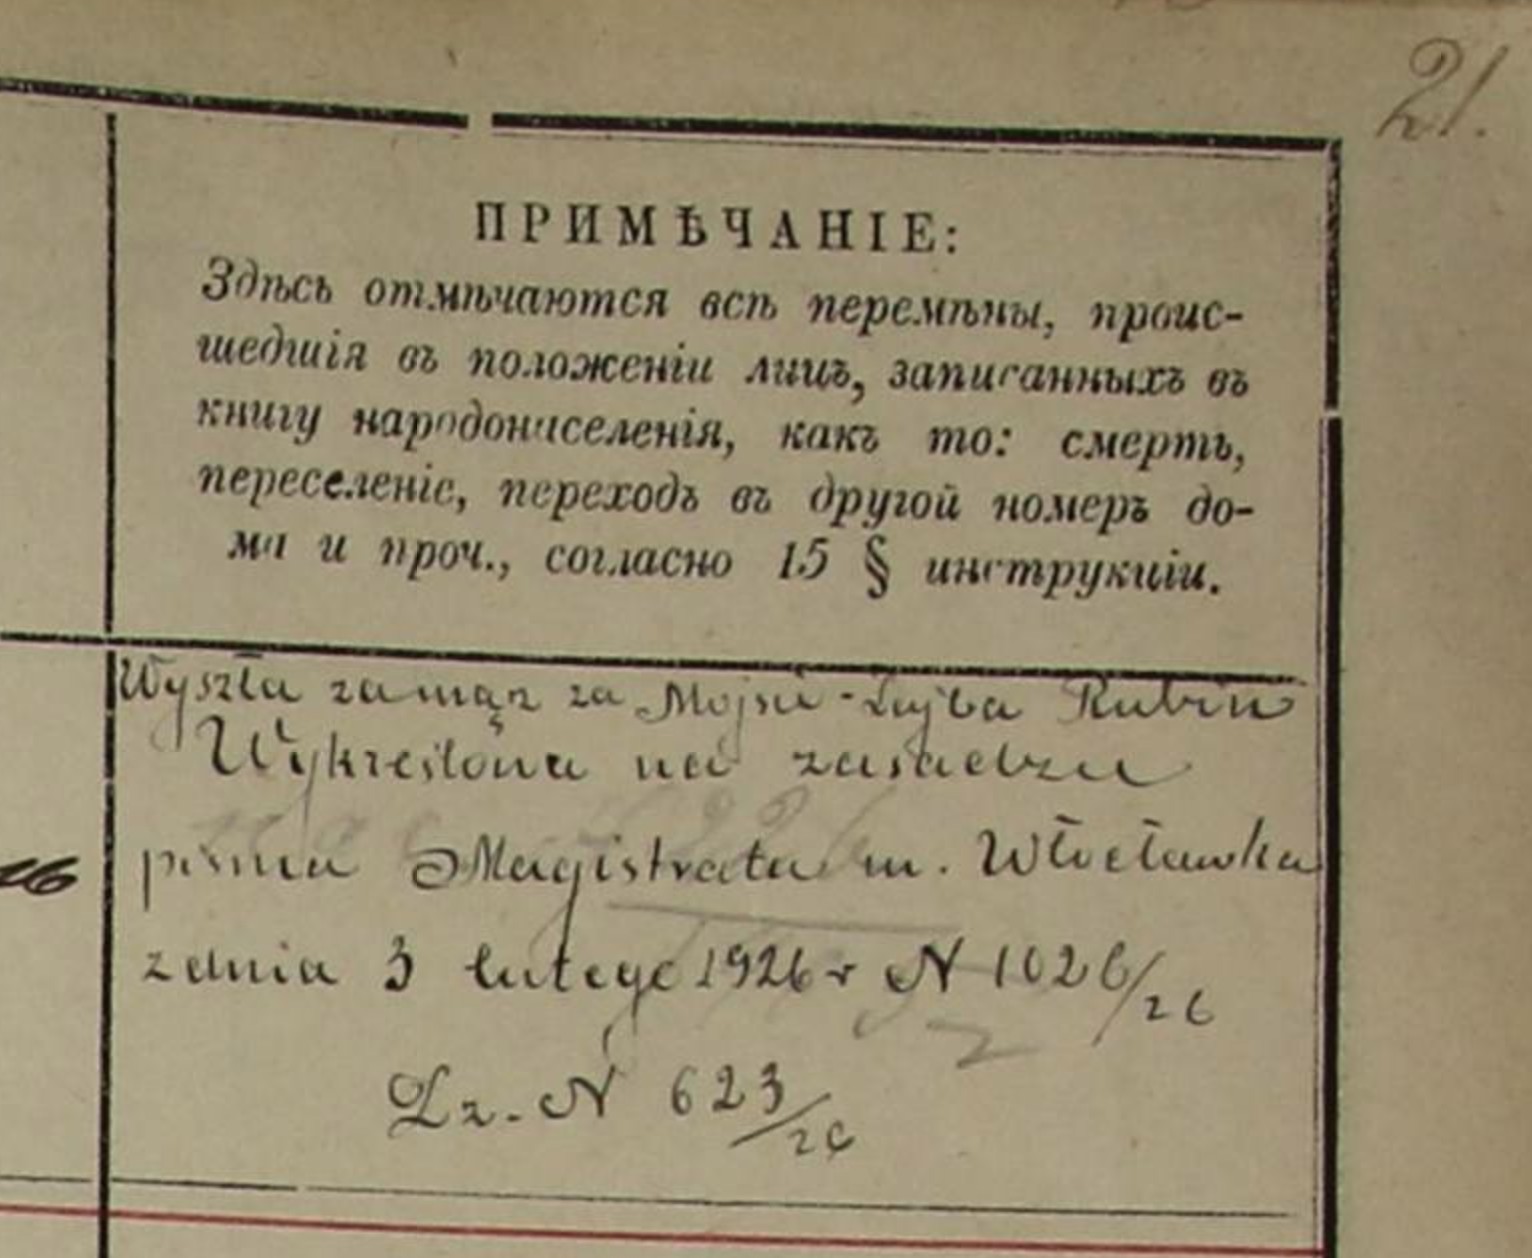 21.
ПРИМѢЧАНІЕ:
Здѣсь отмѣчаются всѣ перемѣны, проис-
шедшія въ положеніи лицъ, записанныхъ въ
книгу народонаселенія, какъ то: смерть,
переселеніе, переходъ въ другой номеръ до-
ма и проч., согласно 15 § инструкціи.
Wyszła zamąz za Mojsie-Lejba Rubin
Wykreślona na zasadzie
16
pisma Magistratu m. Włocławka
z dnia 3 lutego 1926 r N 1026/26
Dz. N 623/26